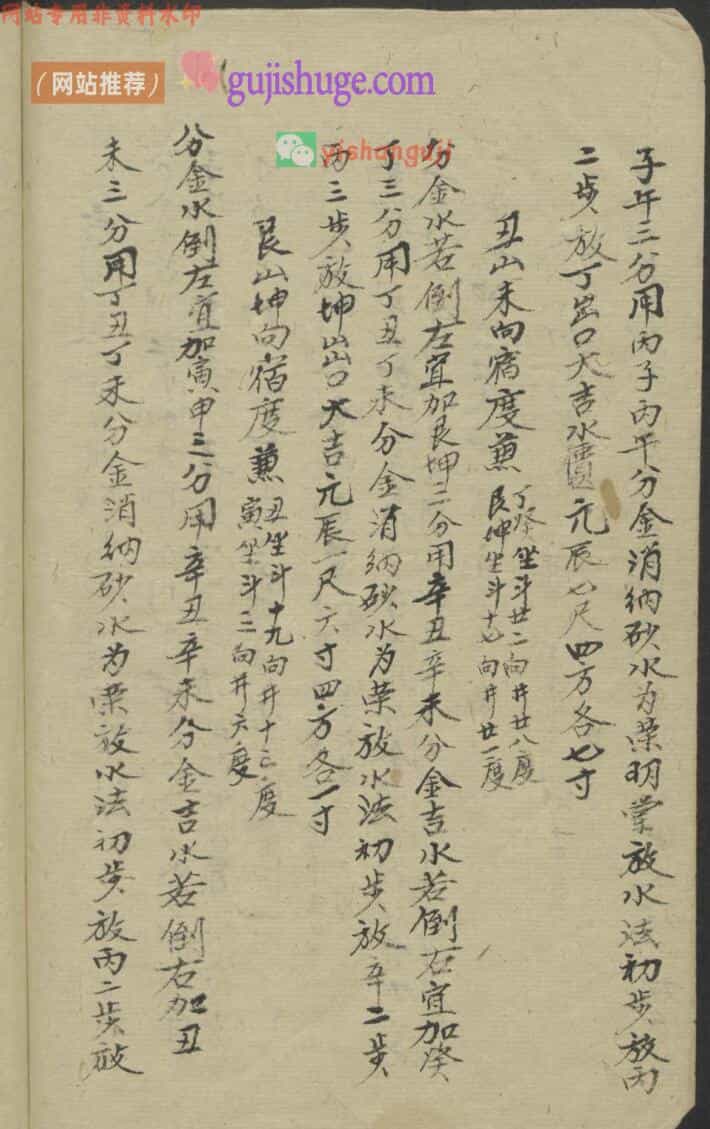 网站专用非资料水印
（网站推荐）
gujishuge.com
yishanguji
子午三分用丙子丙午分金消纳砂水为荣明堂放水法初步放丙
二步放丁出口大吉水 元辰七尺四方各七寸
丑山未向宿度兼
丁癸坐斗廿二向井廿八度
艮坤坐斗十七向井廿一度
分金水若倒左宜加艮坤二分用辛丑辛未分金吉水若倒右宜加癸
丁三分用丁丑丁未分金消纳砂水为荣放水法初步放辛二步
丙三步放坤出口大吉元辰一尺六寸四方各一寸
艮山坤向宿度兼
丑坐斗十九向井十三度
寅坐斗三向井六度
分金水倒左宜加寅申三分用辛丑辛未分金吉水若倒右加丑
未三分用丁丑丁未分金消纳砂水为荣放水法初步放丙二步放